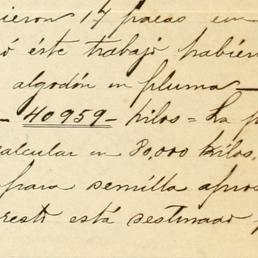 ieron 17 pacas en
ó éste trabajo habién
algodón en pluma —
— 40959 — Kilos = La p
calcular en 30,000 Kilos.
para semilla apro
resto está destinado